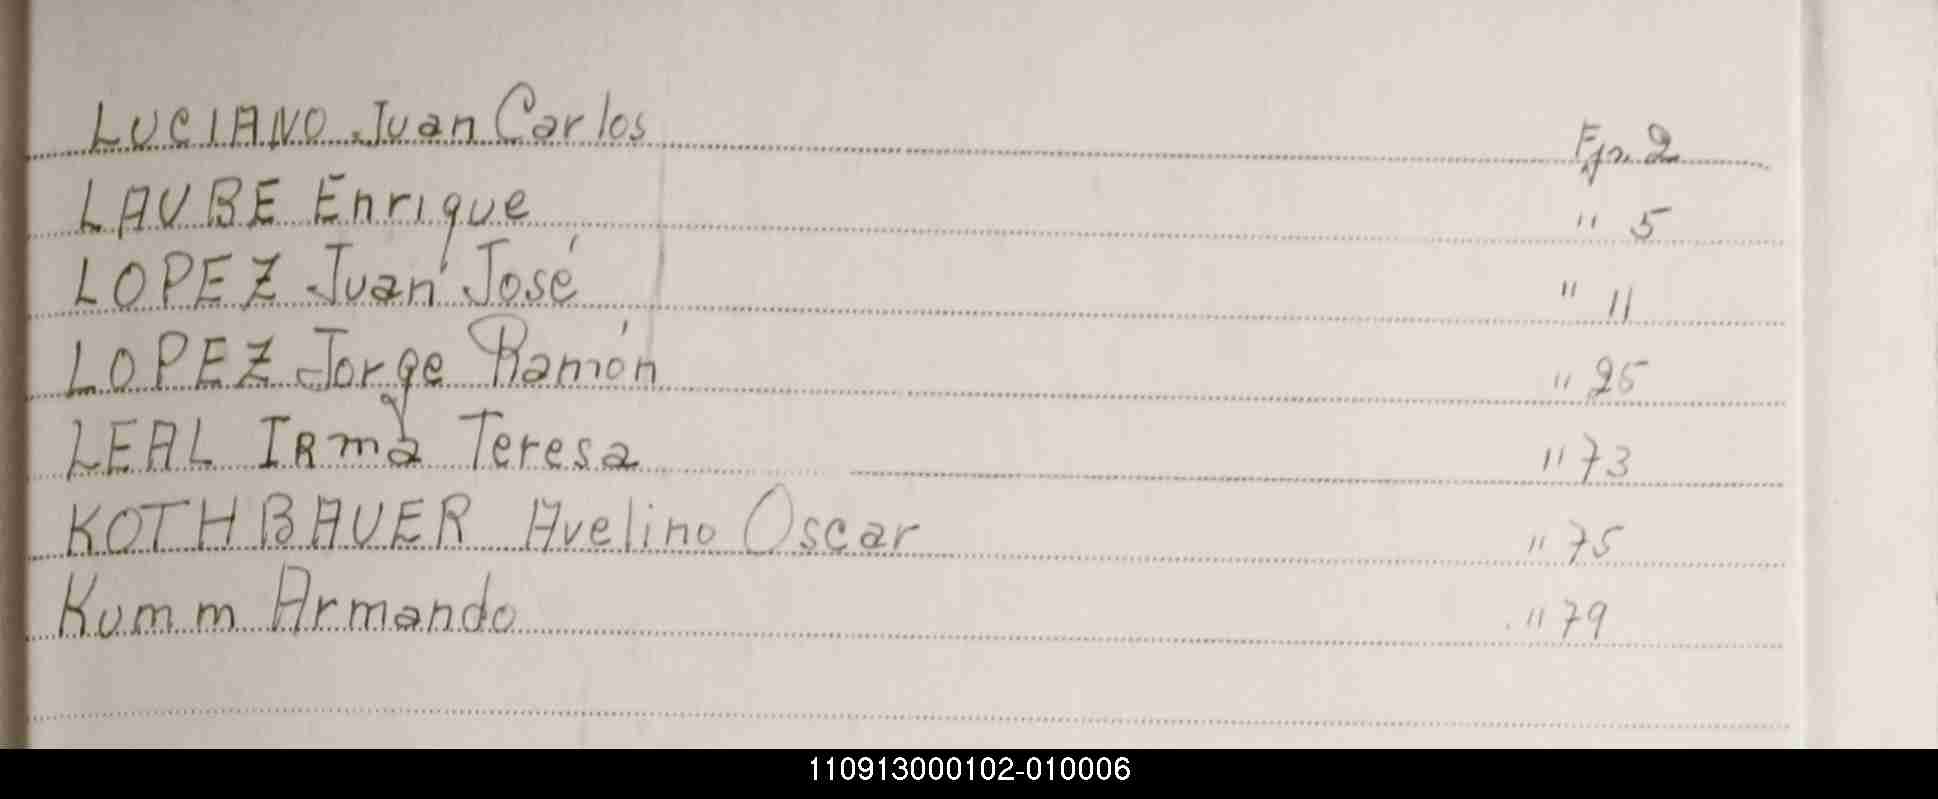 LUCIANO Juan Carlos Fjs. 2
LAUBE Enrique " 5
LOPEZ Juan José " 11
LOPEZ Jorge Ramón " 25
LEAL Irma Teresa " 73
KOTHBAUER Avelino Oscar " 75
Kumm Armando " 79
110913000102-010006